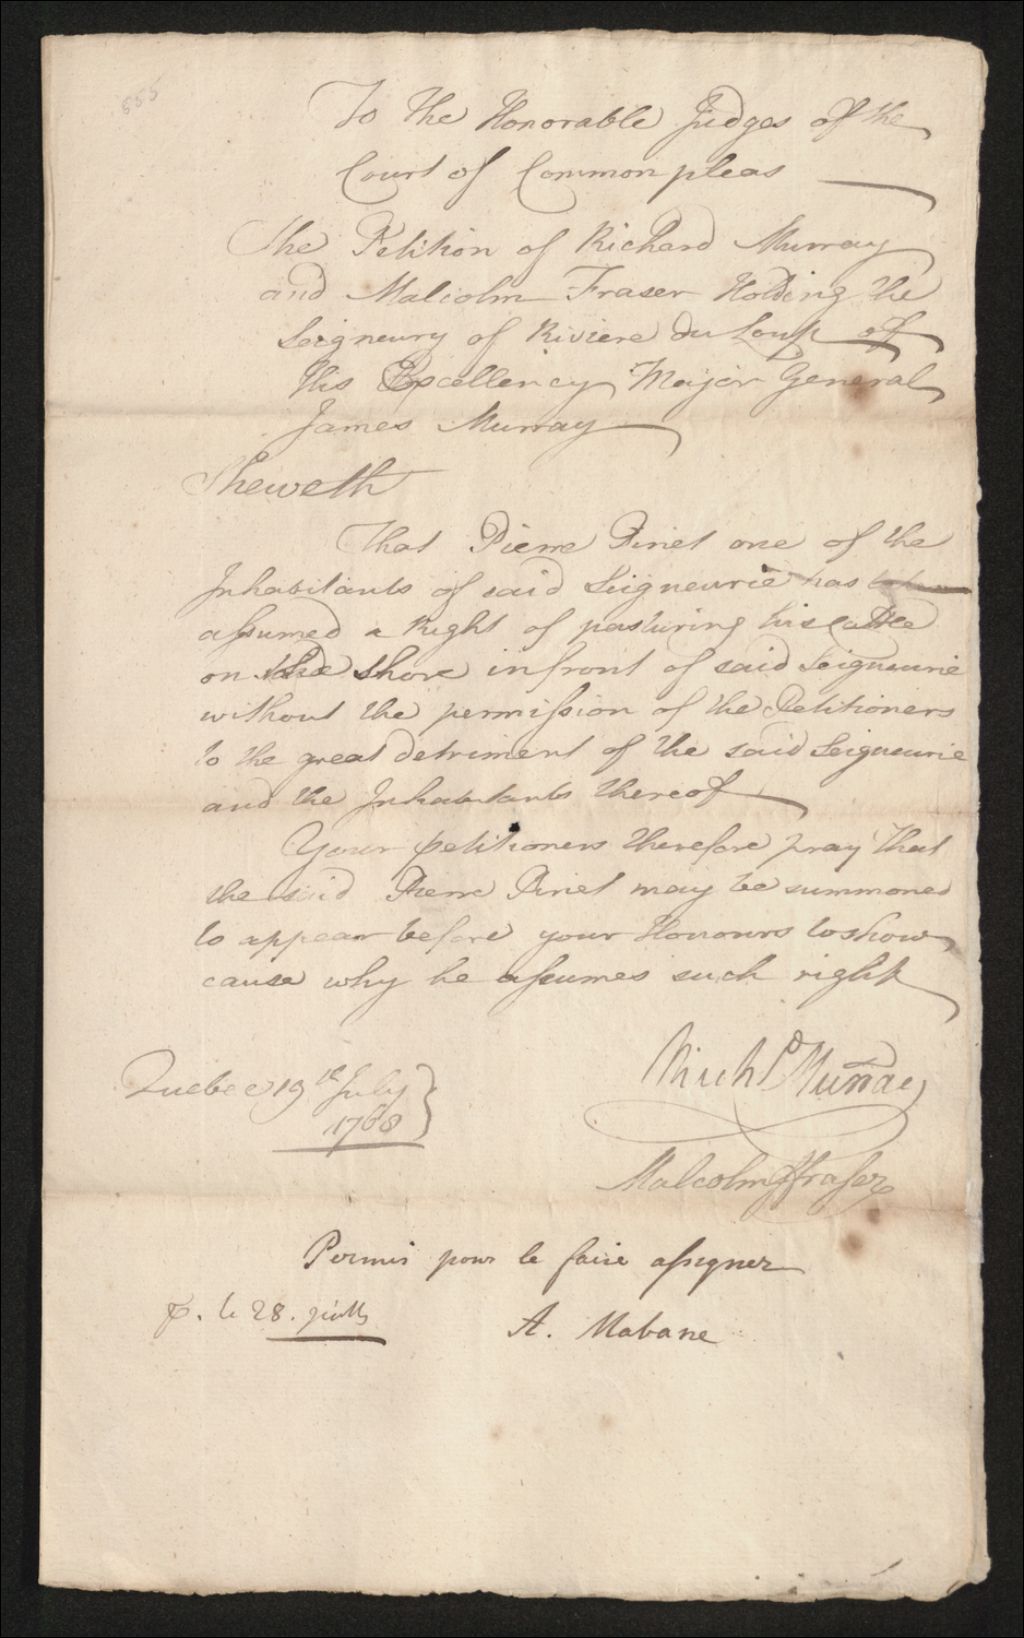 555
To the Honorable Judges of the
Court of Common pleas
The Petition of Richard Murray
and Malcolm Fraser Holding the
Seigneury of Riviere du Loup of
His Excellency Major General
James Murray
Sheweth
That Pierre Pinet one of the
Inhabitants of said Seigneurie has
assumed a Right of pasturing his Cattle
on the shore infront of said Seigneurie
without the permission of the Petitioners
to the great detriment of the said Seigneurie
and the Inhabitants thereof
Your petitioners therefore pray that
the said Pierre Pinet may be summoned
to appear before your Honours to show
cause why he assumes such right
Richd Murray
Quebec 19th July
1768
Malcolm Fraser
Permis pour le faire assigner
le 28. juillt
A. Mabane